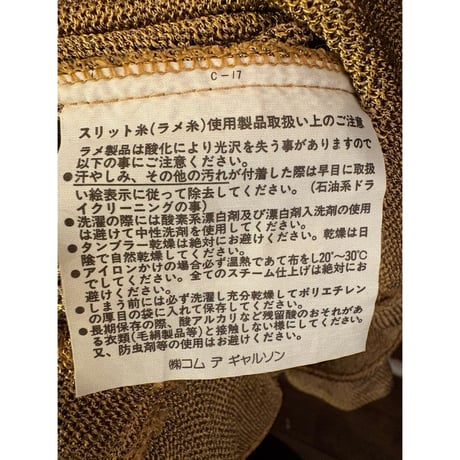 C-17
スリット糸(ラメ糸)使用製品取扱い上のご注意
ラメ製品は酸化により光沢を失う事がありますので
以下の事にご注意ください。
●汗やしみ、その他の汚れが付着した際は早目に取扱
い絵表示に従って除去してください。(石油系ドラ
イクリーニングの事)
●洗濯の際には酸素系漂白剤及び漂白剤入洗剤の使用
は避けて中性洗剤を使用してください。
●タンブラー乾燥は絶対にお避けください。乾燥は日
陰で自然乾燥してください。
●アイロンかけの場合必ず温熱であて布をし20°~30℃
でしてください。全てのスチーム仕上げは絶対にお
避けください。
●しまう前には必ず洗濯し充分乾燥してポリエチレン
の厚目の袋に入れて保存してください。
●長期保存の際、酸アルカリなど残留酸のおそれがあ
る衣類(毛絹製品等)と接触しない様にしてください。
又、防虫剤等の使用はお避けください。
㈱コム デ ギャルソン